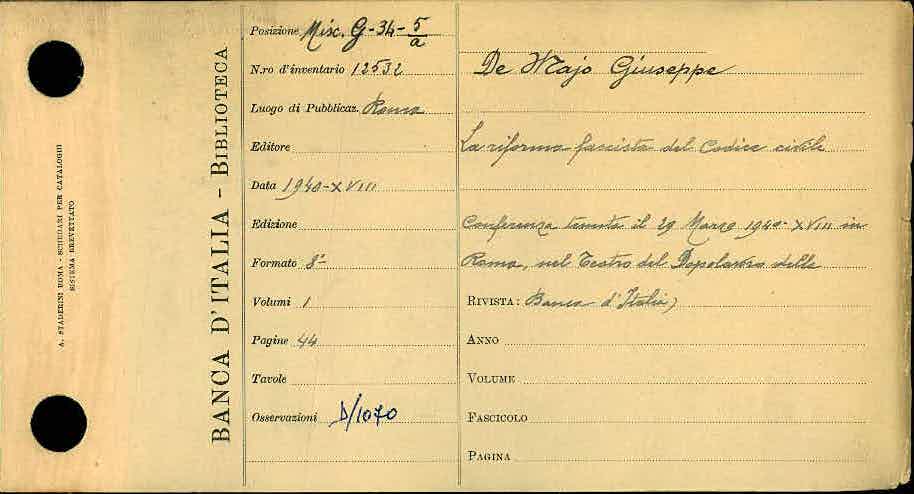 A. STADERINI ROMA - SCHEDARI PER CATALOGHI
SISTEMA BREVETTATO
BANCA D'ITALIA - BIBLIOTECA
Posizione Misc. G-34-5/a
N.ro d'inventario 12532
Luogo di Pubblicaz. Roma
Editore
Data 1940-XVIII
Edizione
Formato 8°
Volumi 1
Pagine 44
Tavole
Osservazioni D/1070
De Majo Giuseppe
La riforma fascista del Codice civile
Conferenza tenuta il 29 Marzo 1940-XVIII in
Roma, nel Teatro del Dopolavoro della
RIVISTA: Banca d'Italia)
ANNO
VOLUME
FASCICOLO
PAGINA